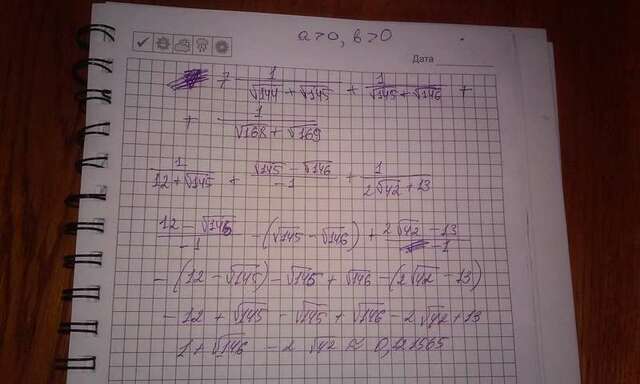 a>0, b>0
Дата
7 1/(√144 + √145) + 1/(√145 + √146) +
+ 1/(√168 + √169)
1/(12 + √145) + (√145 - √146)/-1 + 1/(2√42 + 13)
(12 - √146)/-1 - (√145 - √146) + (2√42 - 13)/-1
- (12 - √145) - √145 + √146 - (2√42 - 13)
- 12 + √145 - √145 + √146 - 2√42 + 13
1 + √146 - 2√42 ≈ 0,121565